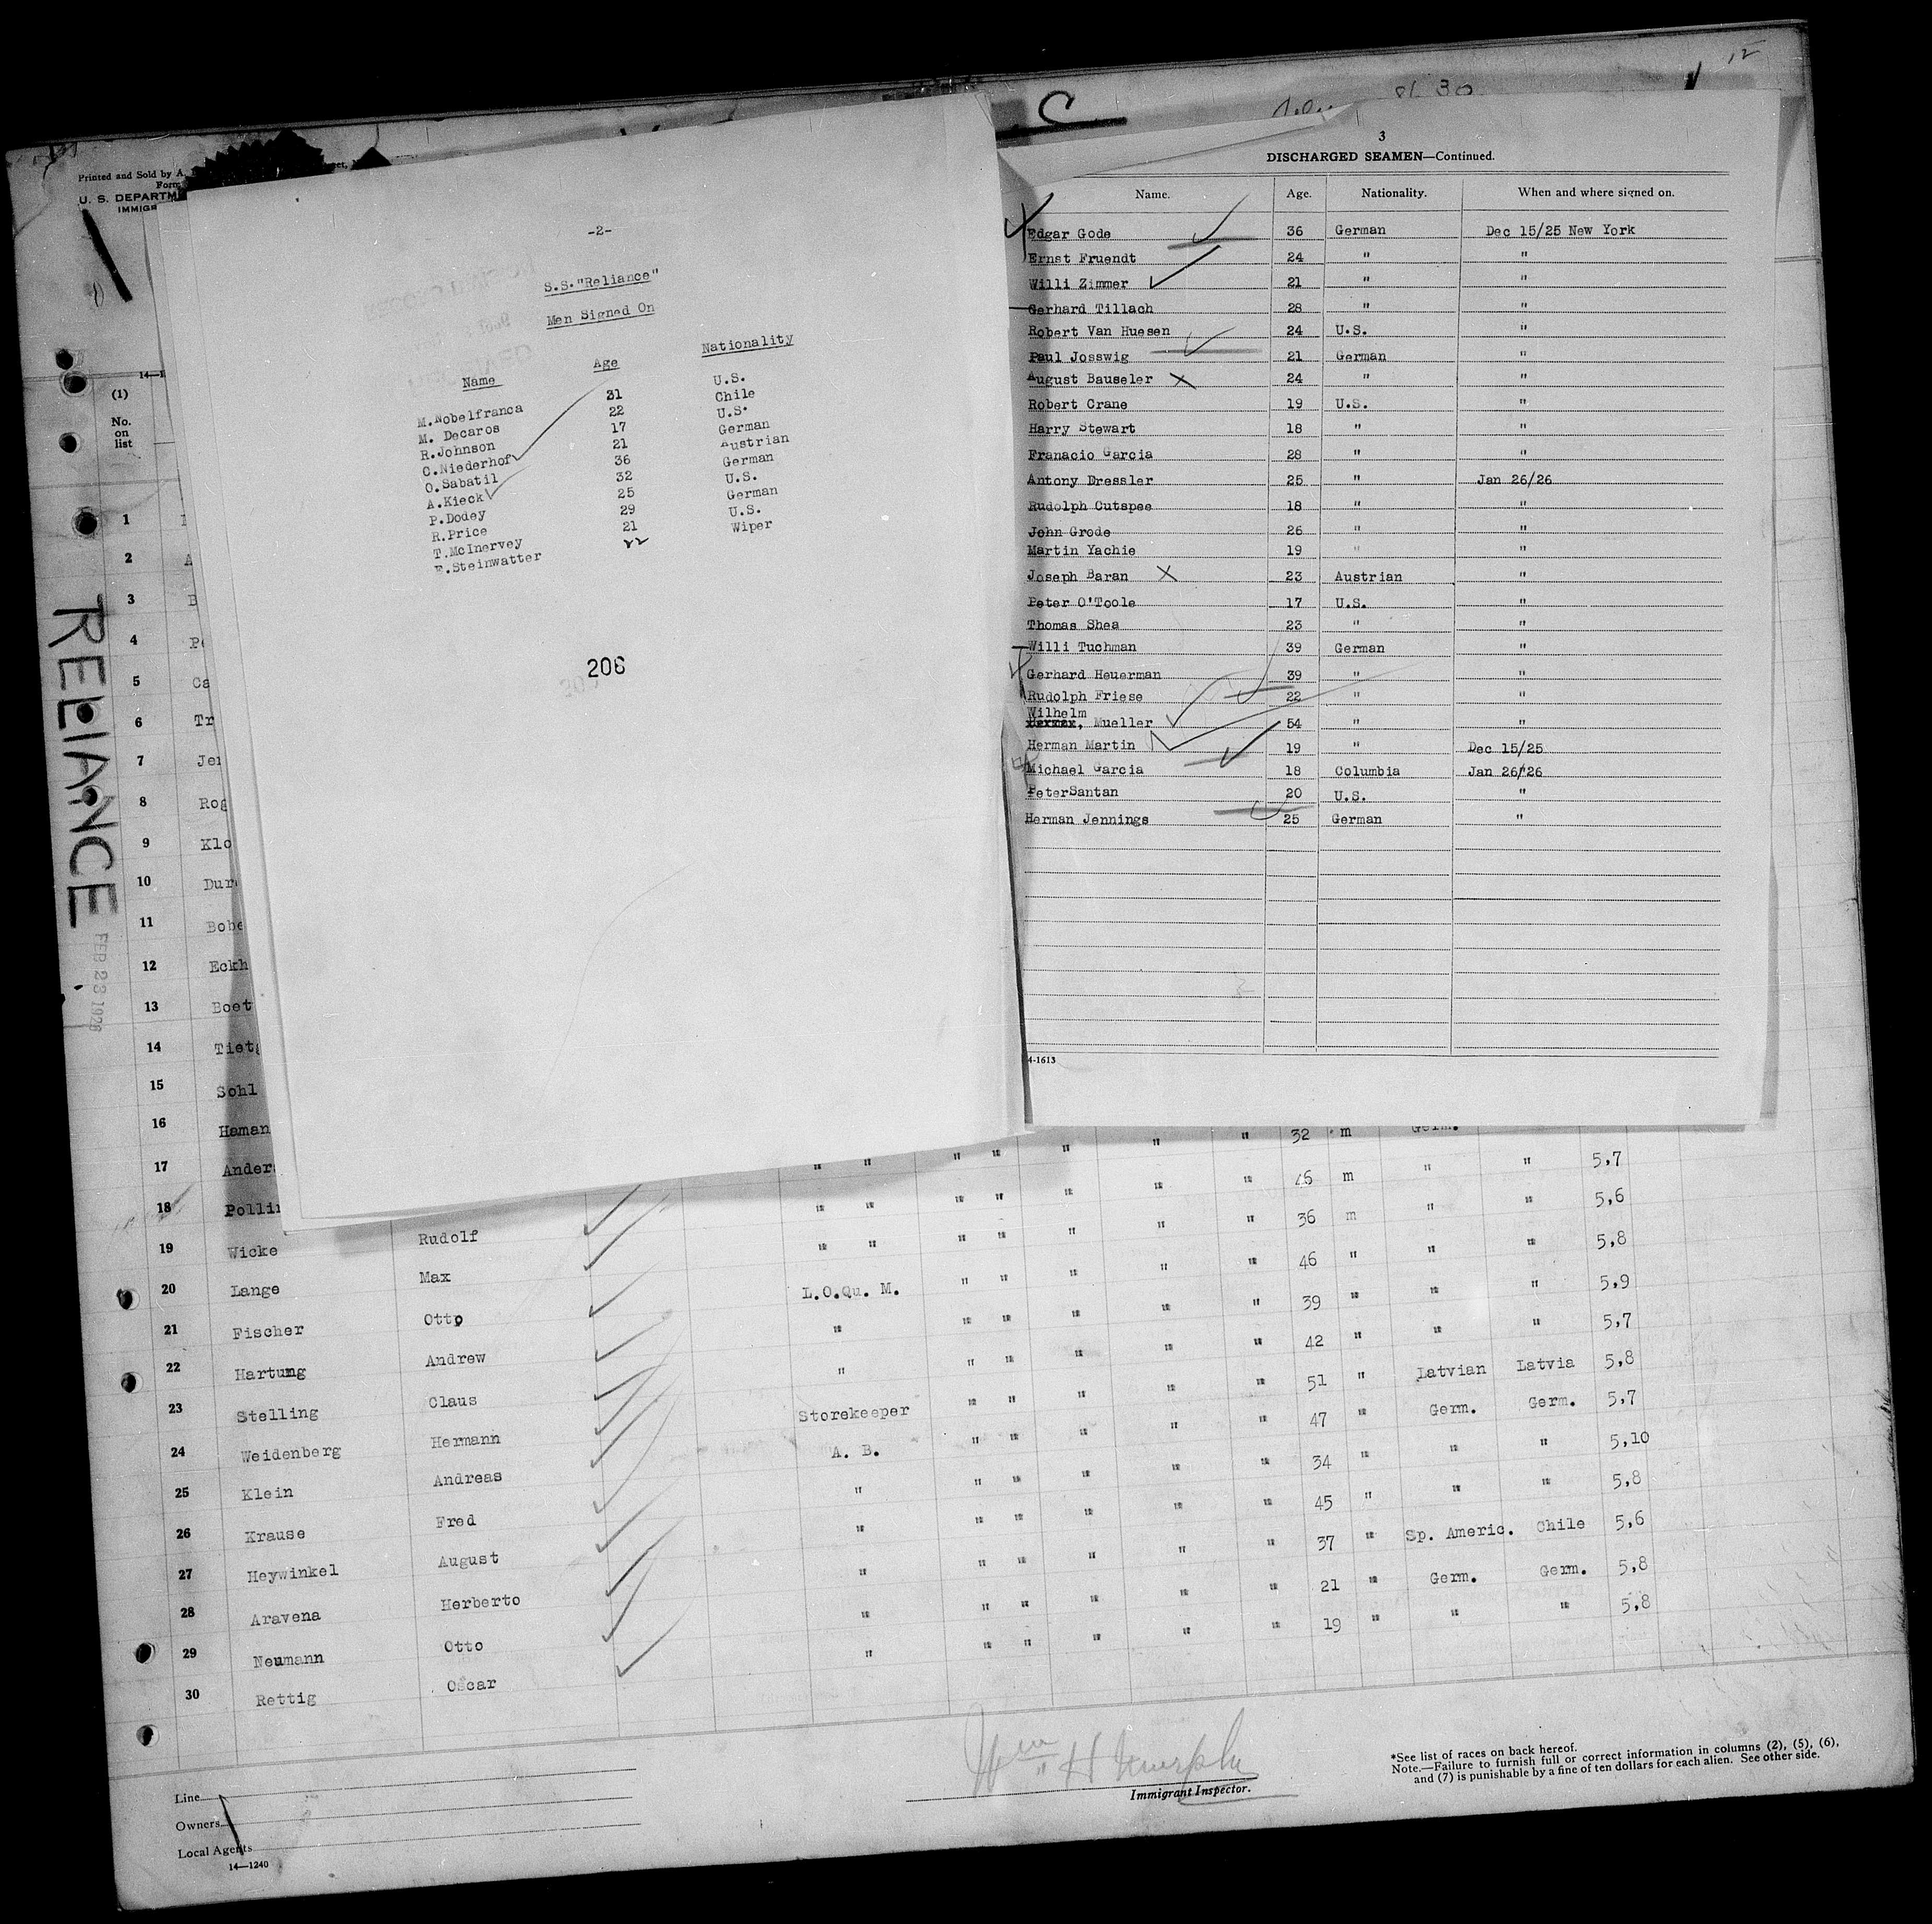 12
Printed and Sold by A.
Form
U. S. DEPARTM
IMMIGR
(1)
No.
on
list
RELIANCE
FEB 23 1926
-2-
S.S."Reliance"
Men Signed On
Name Age Nationality
M.Nobelfranca 31 U.S.
M. Decaros 22 Chile
R.Johnson 17 U.S.
C.Niederhof 21 German
O.Sabatil 36 Austrian
A.Kieck 32 German
P.Dodey 25 U.S.
R.Price 29 German
T.McInervey 21 U.S.
E.Steinwatter 22 Wiper
206
C
3
DISCHARGED SEAMEN—Continued.
Name. Age. Nationality. When and where signed on.
Edgar Gode 36 German Dec 15/25 New York
Ernst Fruendt 24 " "
Willi Zimmer 21 " "
Gerhard Tillach 28 " "
Robert Van Huesen 24 U.S. "
Paul Josswig 21 German "
August Bauseler X 24 " "
Robert Crane 19 U.S. "
Harry Stewart 18 " "
Franacio Garcia 28 " "
Antony Dressler 25 " Jan 26/26
Rudolph Cutspee 18 " "
John Grode 26 " "
Martin Yachie 19 " "
Joseph Baran X 23 Austrian "
Peter O'Toole 17 U.S. "
Thomas Shea 23 " "
Willi Tuchman 39 German "
Gerhard Heuerman 39 " "
Rudolph Friese 22 " "
Wilhelm
Mueller 54 " "
Herman Martin 19 " Dec 15/25
Michael Garcia 18 Columbia Jan 26/26
PeterSantan 20 U.S. "
Herman Jennings 25 German "
4-1613
1
2 A
3 B
4 Pe
5 Ca
6 Tr
7 Jen
8 Rog
9 Klo
10 Dur
11 Bobe
12 Eckh
13 Boet
14 Tietg
15 Sohl
16 Haman
17 Anders " " " " " " " 32 m Germ.
18 Pollin " " " " " " " 46 m " " 5,7
19 Wicke Rudolf " " " " " " " 36 m " " 5,6
20 Lange Max L.O.Qu. M. " " " " " 46 " " " 5,8
21 Fischer Otto " " " " " " 39 " " " 5,9
22 Hartung Andrew " " " " " " 42 " " " 5,7
23 Stelling Claus Storekeeper " " " " " 51 " Latvian Latvia 5,8
24 Weidenberg Hermann A. B. " " " " " 47 " Germ. Germ. 5,7
25 Klein Andreas " " " " " " 34 " " " 5,10
26 Krause Fred " " " " " " 45 " " " 5,8
27 Heywinkel August " " " " " " 37 " Sp. Americ. Chile 5,6
28 Aravena Herberto " " " " " " 21 " Germ. Germ. 5,8
29 Neumann Otto " " " " " " 19 " " " 5,8
30 Rettig Oscar
Wm H Murphy
Immigrant Inspector.
*See list of races on back hereof.
Note.—Failure to furnish full or correct information in columns (2), (5), (6),
and (7) is punishable by a fine of ten dollars for each alien. See other side.
Line
Owners
Local Agents
14—1240